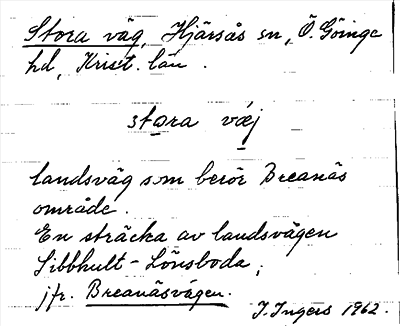 Stora väg, Hjärsås sn, Ö. Göinge
hd, Krist. län.
stora væj
landsväg som berör Breanäs
område.
En sträcka av landsvägen
Sibbhult - Lönsboda,
jfr. Breanäsvägen.
I. Ingers 1962.